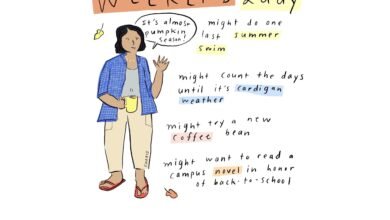 It's almost
pumpkin
season!
might do one
last summer
swim
might count the days
until it's cardigan
weather
might try a new
coffee bean
might want to read a
campus novel in honor
of back-to-school